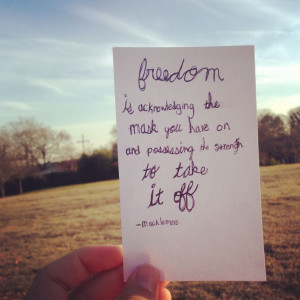 freedom
is acknowledging the
mask you have on
and possessing the strength
to take
it off
-macklemore